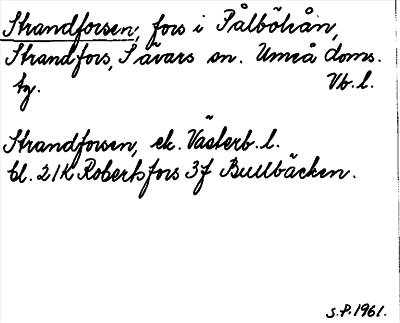 Strandforsen, fors i Pålböleån,
Strandfors, Sävars sn. Umeå doms.
tg. Vb.l.
Strandforsen, ek. Västerb.l.
bl. 21K Robertsfors 3f Bullbäcken.
S.P. 1961.